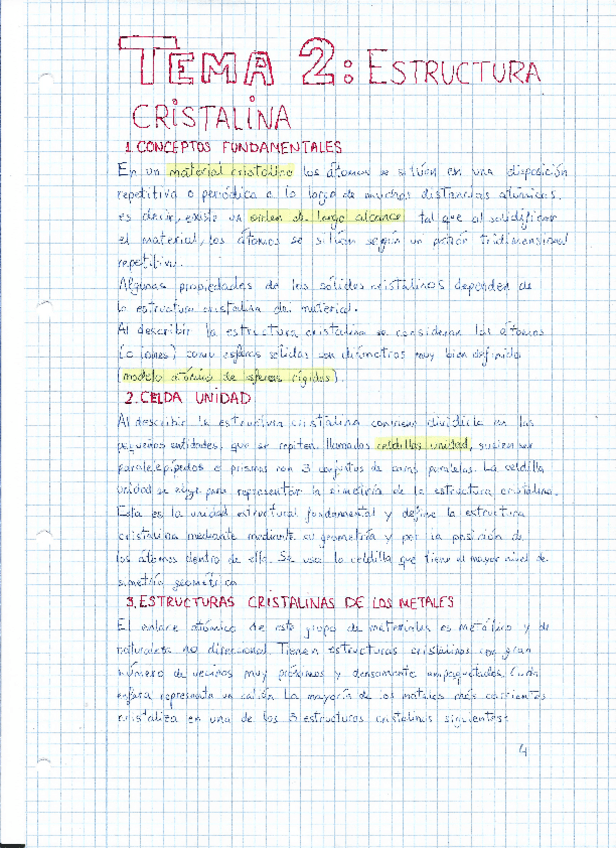 TEMA 2: ESTRUCTURA
CRISTALINA
1. CONCEPTOS FUNDAMENTALES
En un material cristalino los átomos se sitúan en una disposición
repetitiva o periódica a lo largo de muchas distancias atómicas,
es decir, existe un orden de largo alcance tal que al solidificar
el material, los átomos se sitúan según un patrón tridimensional
repetitivo.
Algunas propiedades de los sólidos cristalinos dependen de
la estructura cristalina del material.
Al describir la estructura cristalina se consideran los átomos
(o iones) como esferas sólidas con diámetros muy bien definidos
(modelo atómico de esferas rígidas).
2. CELDA UNIDAD
Al describir la estructura cristalina conviene dividirla en las
pequeñas entidades, que se repiten, llamadas celdillas unidad, suelen ser
paralelepípedos o prismas con 3 conjuntos de caras paralelas. La celdilla
unidad se elige para representar la simetría de la estructura cristalina.
Esta es la unidad estructural fundamental y define la estructura
cristalina mediante mediante su geometría y por la posición de
los átomos dentro de ella. Se usa la celdilla que tiene el mayor nivel de
simetría geométrica
3. ESTRUCTURAS CRISTALINAS DE LOS METALES
El enlace atómico de este grupo de materiales es metálico y de
naturaleza no direccional. Tienen estructuras cristalinas con gran
número de vecinos muy próximos y densamente empaquetados. Cada
esfera representa un catión. La mayoría de los metales más corrientes
cristaliza en una de las 3 estructuras cristalinas siguientes:
4